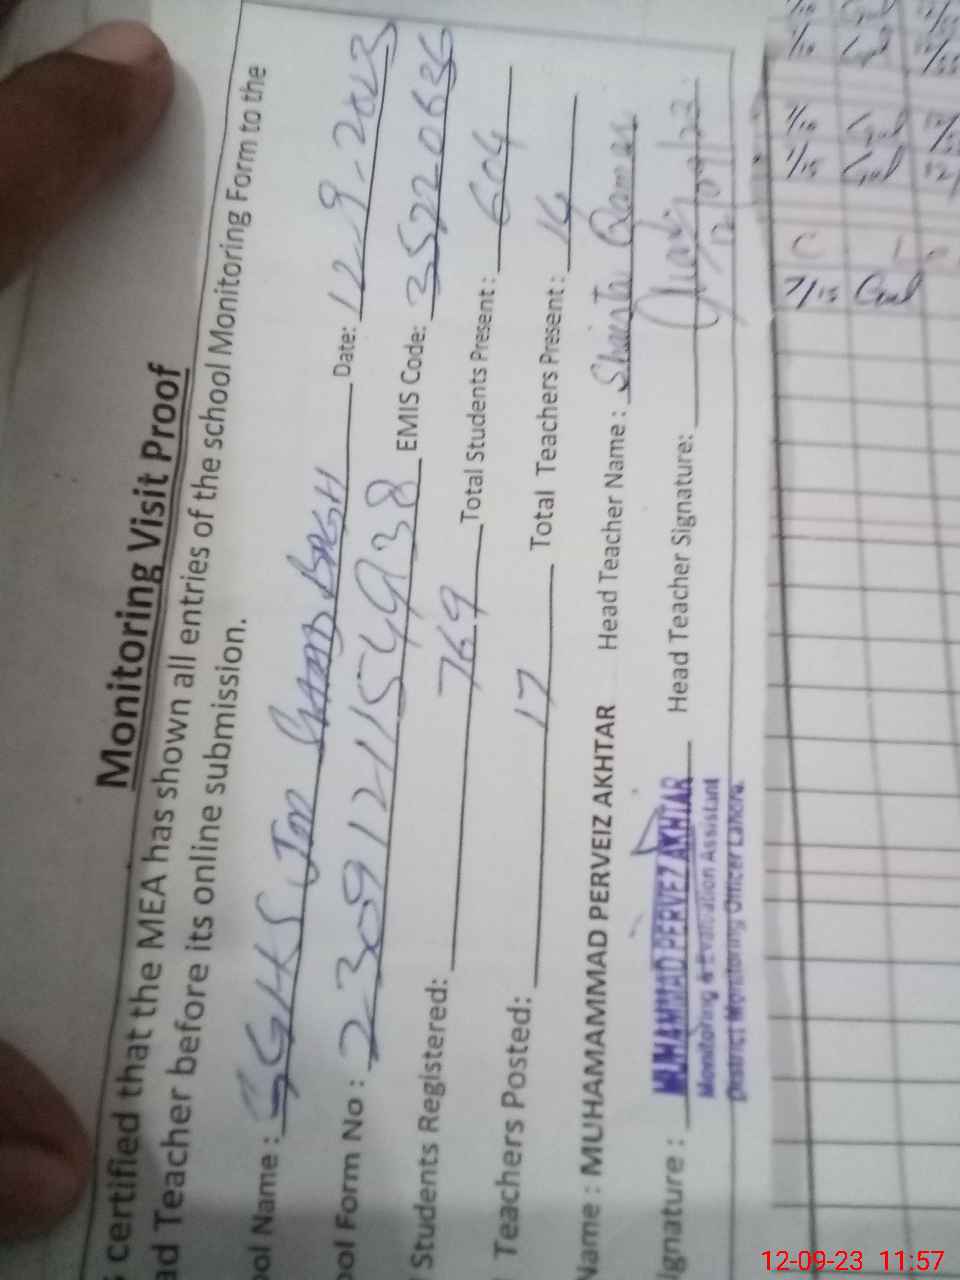 Monitoring Visit Proof
certified that the MEA has shown all entries of the school Monitoring Form to the
ad Teacher before its online submission.
ool Name : GGHS Jon BAGH Date: 12-9-2023
ool Form No : 2309121154938 EMIS Code: 35220636
Students Registered: 769 Total Students Present: 604
Teachers Posted: 17 Total Teachers Present: 14
Name : MUHAMAMMAD PERVEIZ AKHTAR Head Teacher Name : Shaista Qamar
ignature : MUHAMMAD PERVEZ AKHTAR Head Teacher Signature: 12/09/23
Monitoring & Evaluation Assistant
District Monitoring Officer Lahore.
12-09-23 11:57